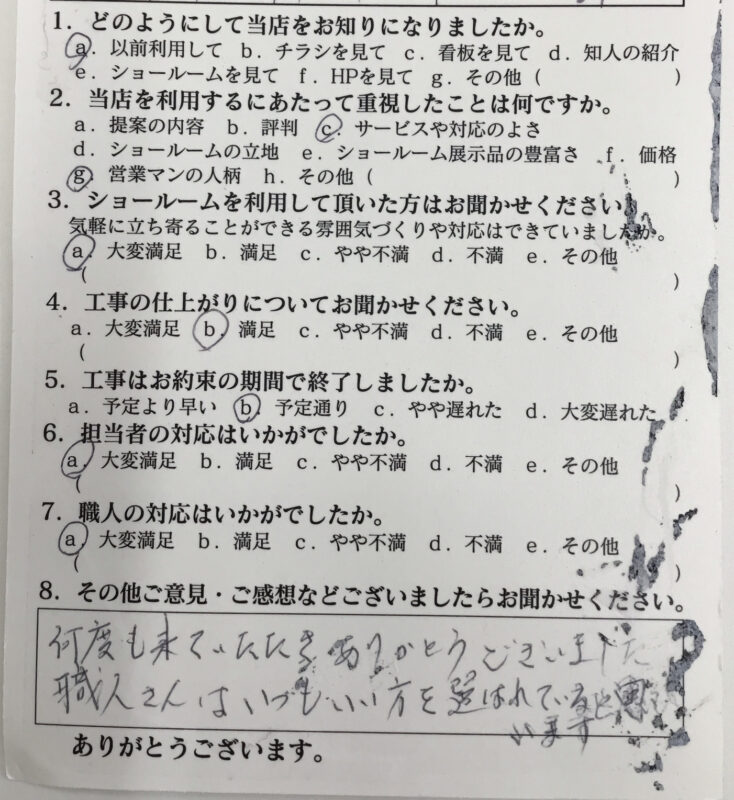 1．どのようにして当店をお知りになりましたか。
a．以前利用して b．チラシを見て c．看板を見て d．知人の紹介
e．ショールームを見て f．HPを見て g．その他（　　　　　　　）
2．当店を利用するにあたって重視したことは何ですか。
a．提案の内容 b．評判 c．サービスや対応のよさ
d．ショールームの立地 e．ショールーム展示品の豊富さ f．価格
g．営業マンの人柄 h．その他（　　　　　　　　　　　　　　）
3．ショールームを利用して頂いた方はお聞かせください。
気軽に立ち寄ることができる雰囲気づくりや対応はできていましたか。
a．大変満足 b．満足 c．やや不満 d．不満 e．その他
（　　　　　　　　　　　　　　　　　　　　　　　　　　　　）
4．工事の仕上がりについてお聞かせください。
a．大変満足 b．満足 c．やや不満 d．不満 e．その他
（　　　　　　　　　　　　　　　　　　　　　　　　　　　　）
5．工事はお約束の期間で終了しましたか。
a．予定より早い b．予定通り c．やや遅れた d．大変遅れた
6．担当者の対応はいかがでしたか。
a．大変満足 b．満足 c．やや不満 d．不満 e．その他
（　　　　　　　　　　　　　　　　　　　　　　　　　　　　）
7．職人の対応はいかがでしたか。
a．大変満足 b．満足 c．やや不満 d．不満 e．その他
（　　　　　　　　　　　　　　　　　　　　　　　　　　　　）
8．その他ご意見・ご感想などございましたらお聞かせください。
何度も来ていただきありがとうございました
職人さんはいつもいい方を選ばれていると
います
ありがとうございます。